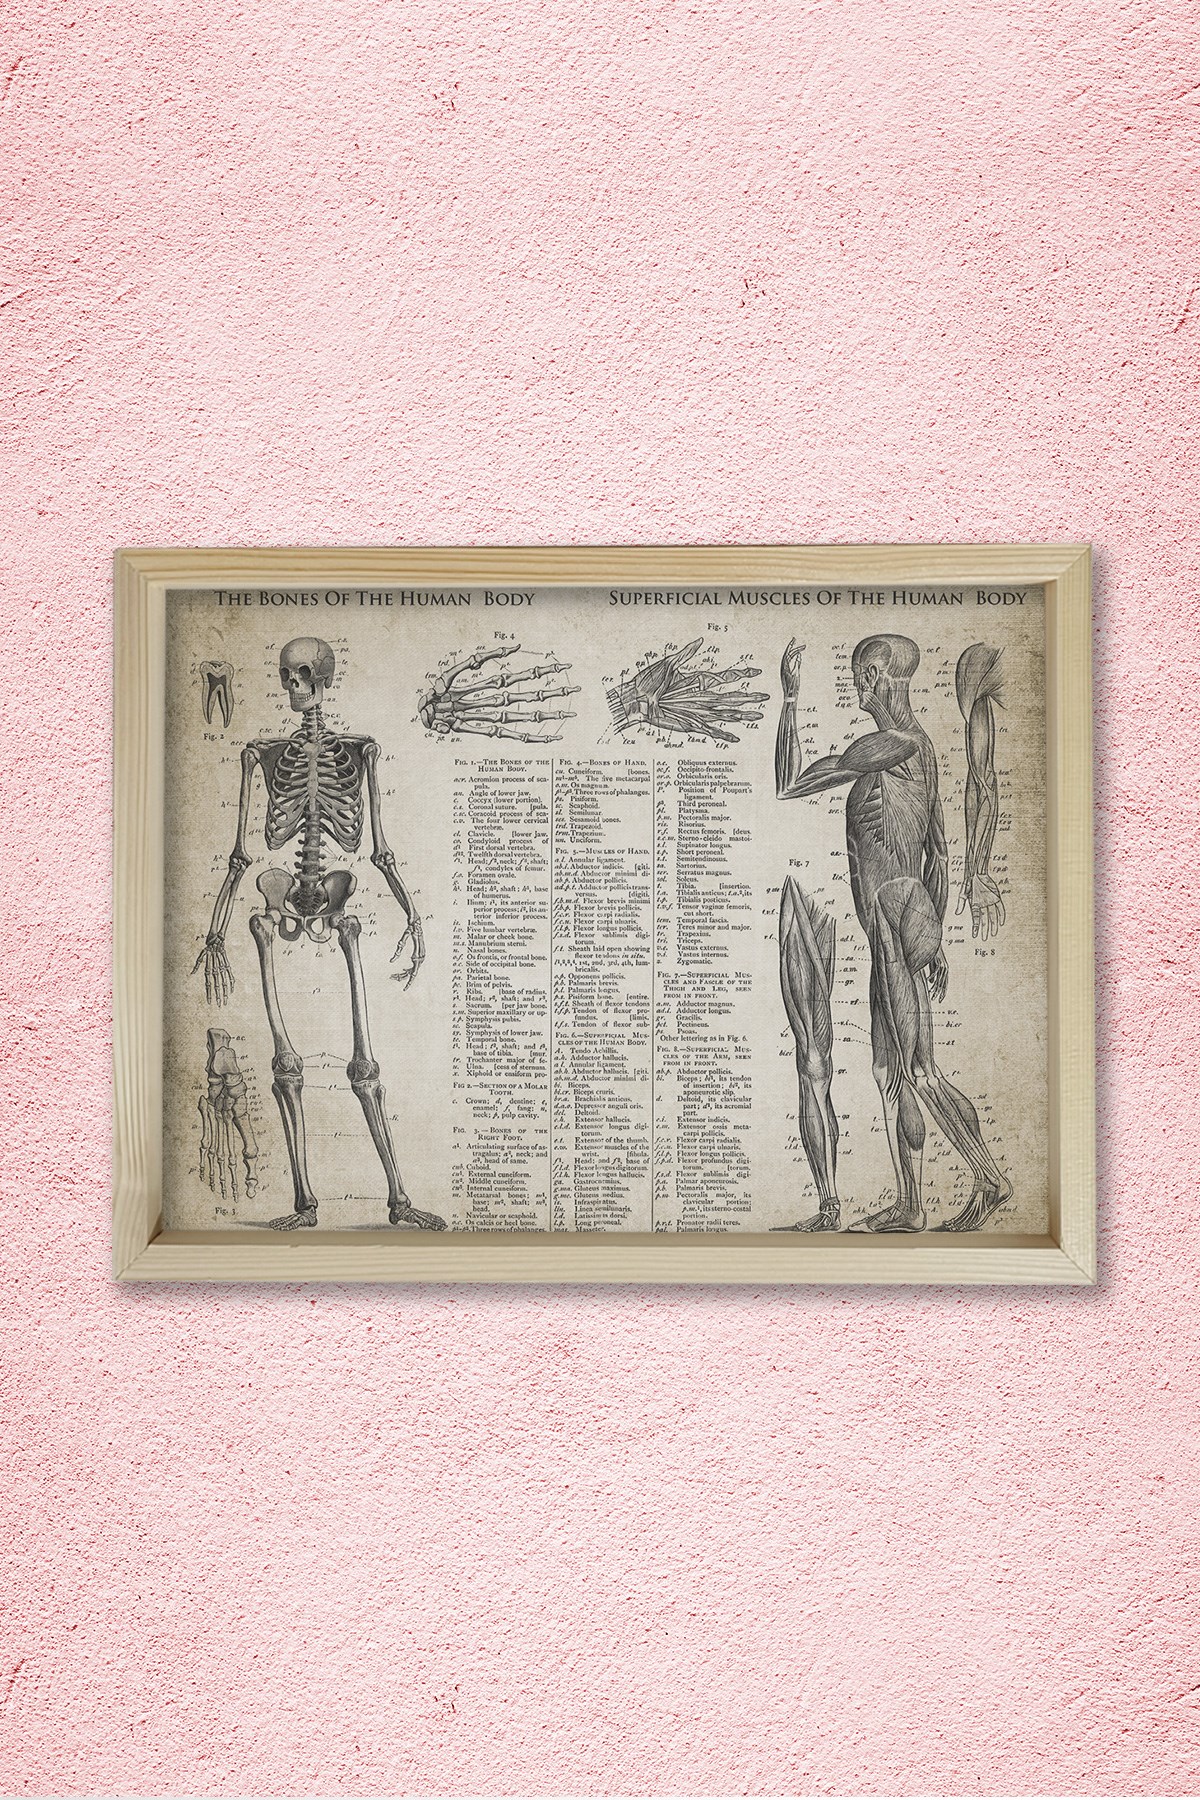 THE BONES OF THE HUMAN BODY
SUPERFICIAL MUSCLES OF THE HUMAN BODY
Fig. 4
Fig. 5
Fig. 2
Fig. 7
Fig. 8
Fig. 3
FIG. 1.—THE BONES OF THE
HUMAN BODY.
Acromion process of sca-
pula.
an. Angle of lower jaw.
c. Coccyx (lower portion).
c.s. Coronal suture. [pula.
Coracoid process of sca-
c.v. The four lower cervical
vertebræ.
cl. Clavicle. [lower jaw.
Condyloid process of
First dorsal vertebra.
Twelfth dorsal vertebra.
Head; neck; shaft;
condyles of femur.
Foramen ovale.
Gladiolus.
Head; shaft; base
of humerus.
Ilium; its anterior su-
perior process; its an-
terior inferior process.
Ischium.
Five lumbar vertebræ.
m. Malar or cheek bone.
Manubrium sterni.
n. Nasal bones.
Os frontis, or frontal bone.
Side of occipital bone.
or. Orbits.
pa. Parietal bone.
Brim of pelvis.
r. Ribs. [base of radius.
Head; shaft; and
s. Sacrum. [per jaw bone.
s.m. Superior maxillary or up-
s.p. Symphysis pubis.
sc. Scapula.
sy. Symphysis of lower jaw.
Temporal bone.
Head; shaft; and
base of tibia. [mur.
tr. Trochanter major of fe-
u. Ulna. [coss of sternum.
x. Xiphoid or ensiform pro-
FIG 2.—SECTION OF A MOLAR
TOOTH.
c. Crown; d, dentine; e,
enamel; f, fang; n,
neck; p, pulp cavity.
FIG. 3.—BONES OF THE
RIGHT FOOT.
Articulating surface of as-
tragalus; neck; and
head of same.
Cuboid.
External cuneiform.
Middle cuneiform.
Internal cuneiform.
m. Metatarsal bones;
base; shaft;
head.
n. Navicular or scaphoid.
o.c. Os calcis or heel bone.
Three rows of phalanges.
FIG. 4.—BONES OF HAND.
cu. Cuneiform. [bones.
The five metacarpal
o.m. Os magnum.
Three rows of phalanges.
Pisiform.
sc. Scaphoid.
sl. Semilunar.
Sesamoid bones.
Trapezoid.
trm. Trapezium.
un. Unciform.
FIG. 5.—MUSCLES OF HAND.
a.l. Annular ligament.
Abductor indicis. [giti.
ab.m.d. Abductor minimi di-
ab.p. Abductor pollicis.
ad.p.t. Adductor pollicis trans-
versus. [digiti.
f.b.m.d. Flexor brevis minimi
f.b.p. Flexor brevis pollicis.
f.c.r. Flexor carpi radialis.
f.c.u. Flexor carpi ulnaris.
f.l.p. Flexor longus pollicis.
f.s.d. Flexor sublimis digi-
torum.
Sheath laid open showing
flexor tendons in situ.
1st, 2nd, 3rd, 4th, lum-
bricalis.
Opponens pollicis.
p.b. Palmaris brevis.
p.l. Palmaris longus.
Pisiform bone. [entire.
Sheath of flexor tendons
Tendon of flexor pro-
fundus. [limis.
Tendon of flexor sub-
FIG. 6.—SUPERFICIAL MUS-
CLES OF THE HUMAN BODY.
A. Tendo Achillis.
a.h. Adductor hallucis.
a.l. Annular ligament.
ab.h. Abductor hallucis. [giti.
ab.m.d. Abductor minimi di-
bi. Biceps.
bi.cr. Biceps cruris.
br.a. Brachialis anticus.
d.a.o. Depressor anguli oris.
del. Deltoid.
e.h. Extensor hallucis.
e.l.d. Extensor longus digi-
torum.
e.t. Extensor of the thumb.
Extensor muscles of the
wrist. [fibula.
Head; and base of
f.l.d. Flexor longus digitorum.
f.l.h. Flexor longus hallucis.
ga. Gastrocnemius.
g.ma. Gluteus maximus.
g.me. Gluteus medius.
Infraspinatus.
lin. Linea semilunaris.
l.d. Latissimus dorsi.
l.p. Long peroneal.
mas. Masseter.
o.e. Obliquus externus.
oc.f. Occipito-frontalis.
or.o. Orbicularis oris.
or.p. Orbicularis palpebrarum.
Position of Poupart's
ligament.
Third peroneal.
pl. Platysma.
p.m. Pectoralis major.
ris. Risorius.
r.f. Rectus femoris. [deus.
Sterno-cleido mastoi-
s.l. Supinator longus.
s.p. Short peroneal.
s.t. Semitendinosus.
sa. Sartorius.
ser. Serratus magnus.
sol. Soleus.
t. Tibia. [insertion.
t.a. Tibialis anticus; its
t.p. Tibialis posticus.
t.v.f. Tensor vaginæ femoris,
cut short.
tem. Temporal fascia.
ter. Teres minor and major.
Trapezius.
tri. Triceps.
v.e. Vastus externus.
v.i. Vastus internus.
z. Zygomatic.
FIG. 7.—SUPERFICIAL MUS-
CLES AND FASCIÆ OF THE
THIGH AND LEG, SEEN
FROM IN FRONT.
a.m. Adductor magnus.
ad.l. Adductor longus.
gr. Gracilis.
Pectineus.
ps. Psoas.
Other lettering as in Fig. 6.
FIG. 8.—SUPERFICIAL MUS-
CLES OF THE ARM, SEEN
FROM IN FRONT.
ab.p. Abductor pollicis.
bi. Biceps; its tendon
of insertion; its
aponeurotic slip.
d. Deltoid, its clavicular
part; its acromial
part.
e.i. Extensor indicis.
Extensor ossis meta-
carpi pollicis.
f.c.r. Flexor carpi radialis.
f.c.u. Flexor carpi ulnaris.
f.l.p. Flexor longus pollicis.
f.p.d. Flexor profundus digi-
torum. [torum.
f.s.d. Flexor sublimis digi-
p.a. Palmar aponeurosis.
p.b. Palmaris brevis.
p.m. Pectoralis major, its
clavicular portion;
its sterno-costal
portion.
p.r.t. Pronator radii teres.
pal. Palmaris longus.